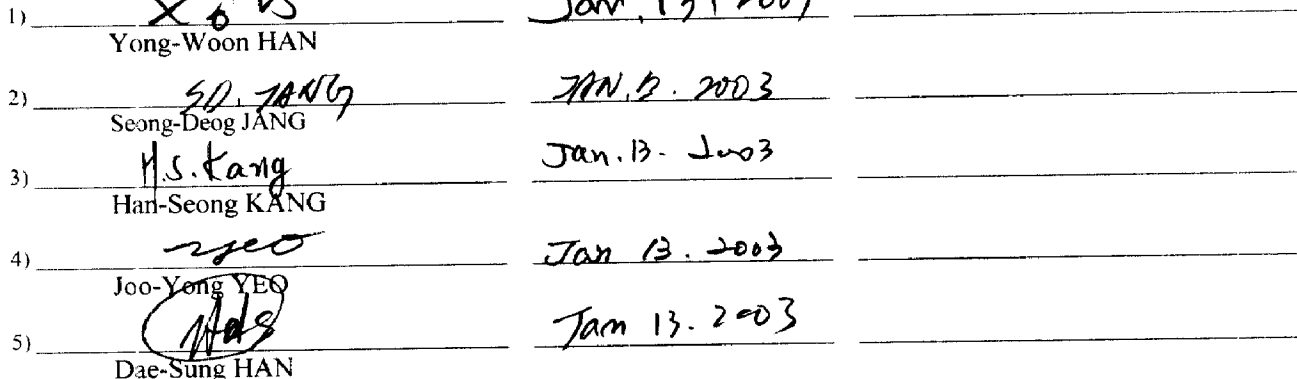 1) Jan. 13, 2003
Yong-Woon HAN
2) SD. JANG JAN. 13. 2003
Seong-Deog JANG
3) H.S. Kang Jan. 13. 2003
Han-Seong KANG
4) yeo Jan 13. 2003
Joo-Yong YEO
5) Jan 13. 2003
Dae-Sung HAN